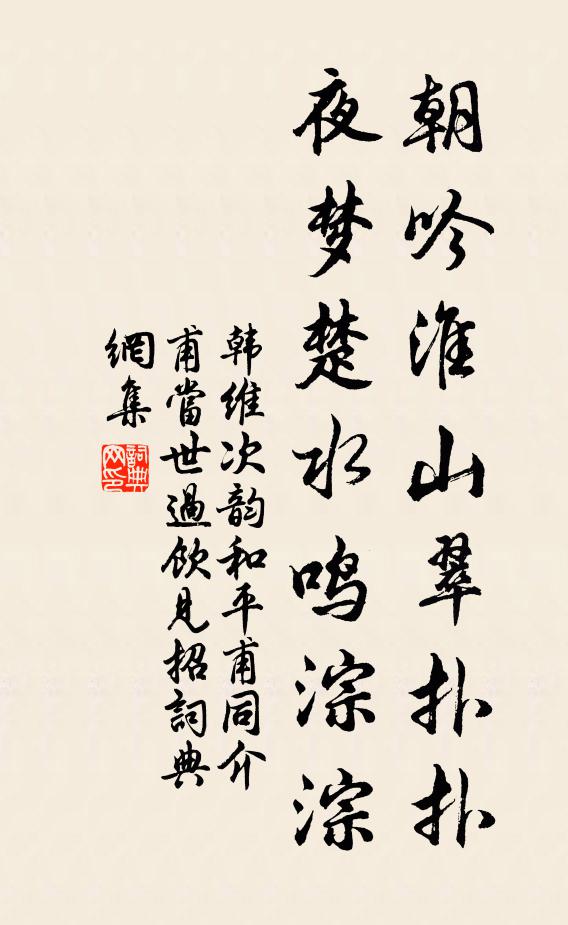 朝吟淮山翠扑扑
夜梦楚水鸣淙淙
韩维次韵和平甫同介
甫當世過飲見招詞典
網集
詞典网印